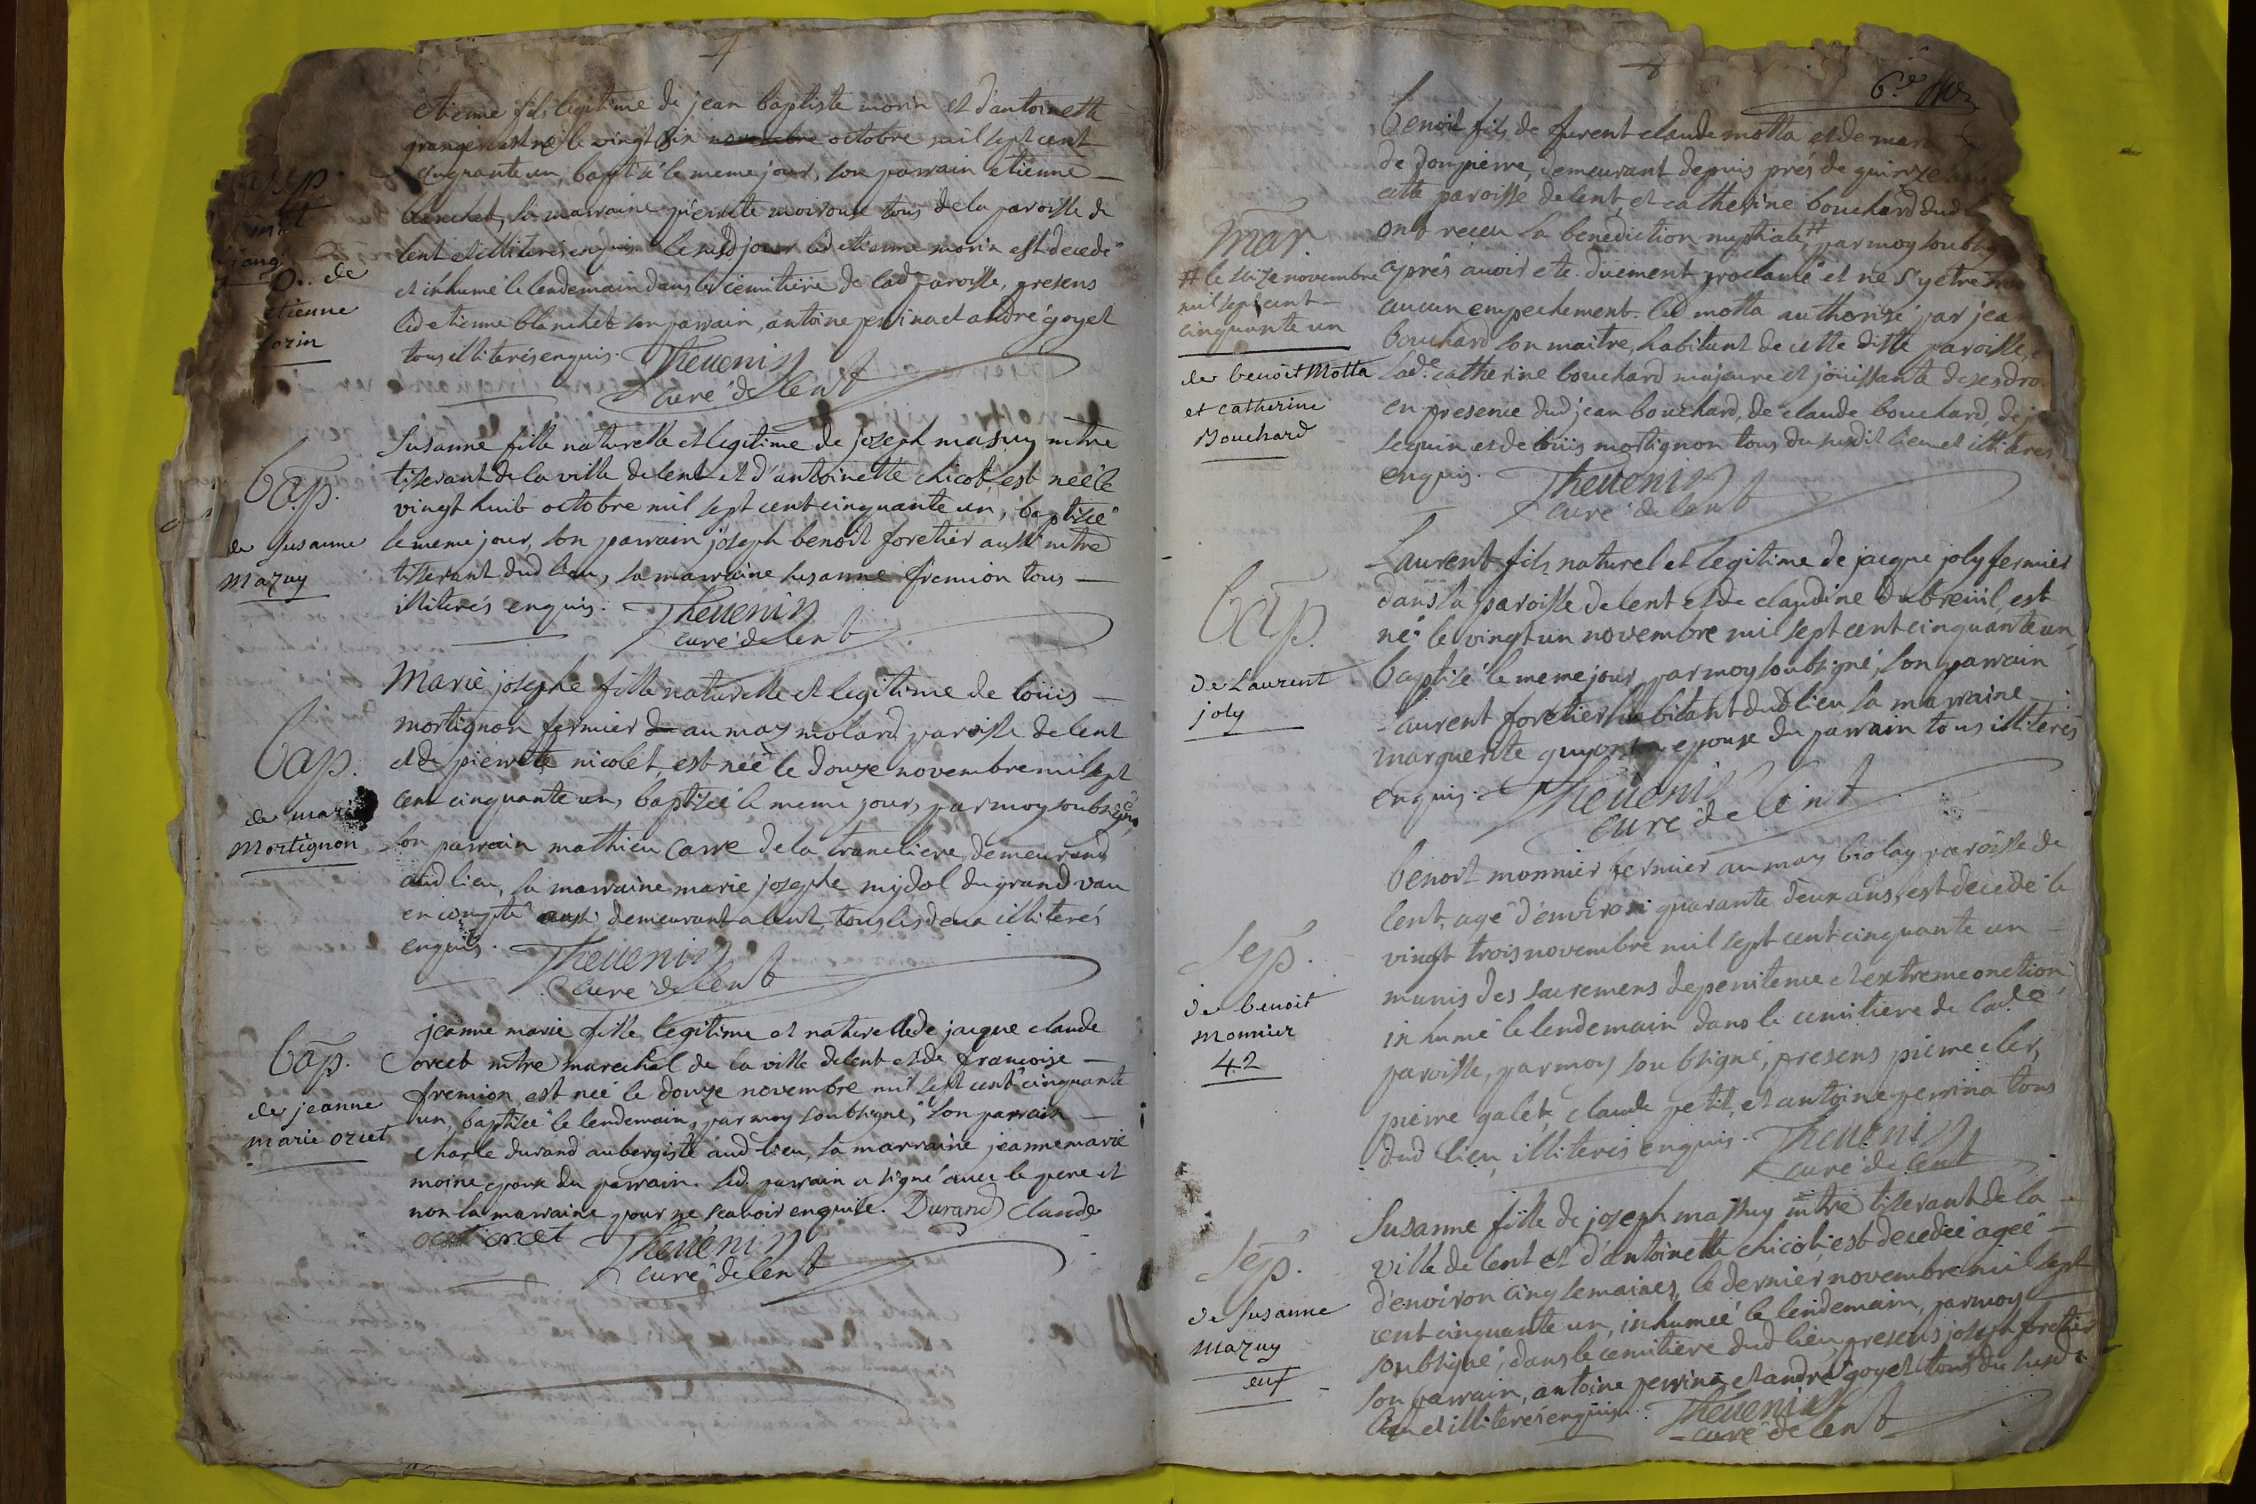 etienne fils legitime de jean baptiste morin et d'antoinette
granger est né le vingt six novembre octobre mil sept cent
cinquante un, baptisé le meme jour, son parrain etienne
blanchet, sa marraine pierrette tous de la paroisse de
lent et illiterés enquis. le susd jour led etienne morin est decedé
et inhumé le lendemain dans le cemitiere de lad paroisse, presens
led etienne blanchet son parrain, antoine perrina et andré goyet
tous illiterés enquis. Thevenin
curé de lent
etienne
orin
Bap.
de susanne
Mazuy
Susanne fille naturelle et legitime de joseph masuy mtre
tisserant de la ville de lent et d'antoinette chicot, est née le
vingt huit octobre mil sept cent cinquante un, baptisée
le meme jour, son parrain joseph benoit foretier aussi mtre
tisserant dud lieu, sa marraine susanne fremion tous
illiterés enquis. Thevenin
curé de lent
Bap.
de marie
Mortignon
Marie josephe fille naturelle et legitime de loüis
mortignon fermier de au mas molard paroisse de lent
et de pierrette nicolet est née le douze novembre mil sept
cent cinquante un, baptisée le meme jour, par moy soubsigné,
son parrain mathieu carre de la trancliere, demeurand
aud lieu, sa marraine marie josephe midol du grand vau
en comté aussi demeurant a lent, tous les deux illiterés
enquis. Thevenin
curé de lent
Bap.
de jeanne
marie orcet
jeanne marie fille legitime et naturelle de jacque claude
orcet mtre marechal de la ville de lent et de francoise
fremion, est née le douze novembre mil sept cent cinquante
un, baptisée le lendemain, par moy soubsigné, son parrain
charle durand aubergiste aud lieu, sa marraine jeanne marie
moine epouse du parrain. led. parrain a signé avec le pere et
non la marraine pour ne scavoir enquise. Durand Claude
orcet Thevenin
curé de lent
6e
Mar
# le seize novembre
mil sept cent
cinquante un
de benoit Motta
et catherine
Bouchard
benoit fils de furent claude motta et de
de dompierre, demeurant depuis prés de quinze
cette paroisse de lent, et catherine bouchard dud
ont receu la benediction nuptiale # par moy soubsig
aprés avoir eté duement proclamé et ne s'y etre
aucun empechement. led motta authorisé par jean
bouchard son maitre, habitant de cette ditte paroisse,
lade. catherine bouchard majeure et jouissante de ses dro
en presence dud jean bouchard, de claude bouchard, de
seguin et de loüis mortignon tous du susdit lieu et illiterés
enquis. Thevenin
curé de lent
Bap.
de Laurent
joly
Laurent fils naturel et legitime de jacque joly fermier
dans la paroisse de lent et de claudine dubreüil, est
né le vingt un novembre mil sept cent cinquante un,
baptisé le meme jour, par moy soubsigné, son parrain
laurent foretier habitant dud lieu sa marraine
marguerite guyon epouse du parrain tous illiterés
enquis. Thevenin
curé de lent
Sep.
de benoit
monnier
42
benoit monnier fermier au mas biolay paroisse de
lent, agé d'environ quarante deux ans, est decedé le
vingt trois novembre mil sept cent cinquante un
munis des sacremens de penitence et extreme onction
inhumé le lendemain dans le cemitiere de lade.
paroisse, par moy soubsigné, presens pierre cler,
pierre galet, claude petit, et antoine perrina tous
dud lieu, illiterés enquis. Thevenin
curé de lent
Sep.
de Susanne
Mazuy
enf
Susanne fille de joseph masuy mtre tisserant de la
ville de lent et d'antoinette chicot, est decedée agée
d'environ cinq semaines, le dernier novembre mil sept
cent cinquante un, inhumée le lendemain, par moy
soubsigné, dans le cemitiere dud lieu, presens joseph foretier
son parrain, antoine perrina, et andré goyet tous du susd
lieu et illiterés enquis. Thevenin
curé de lent